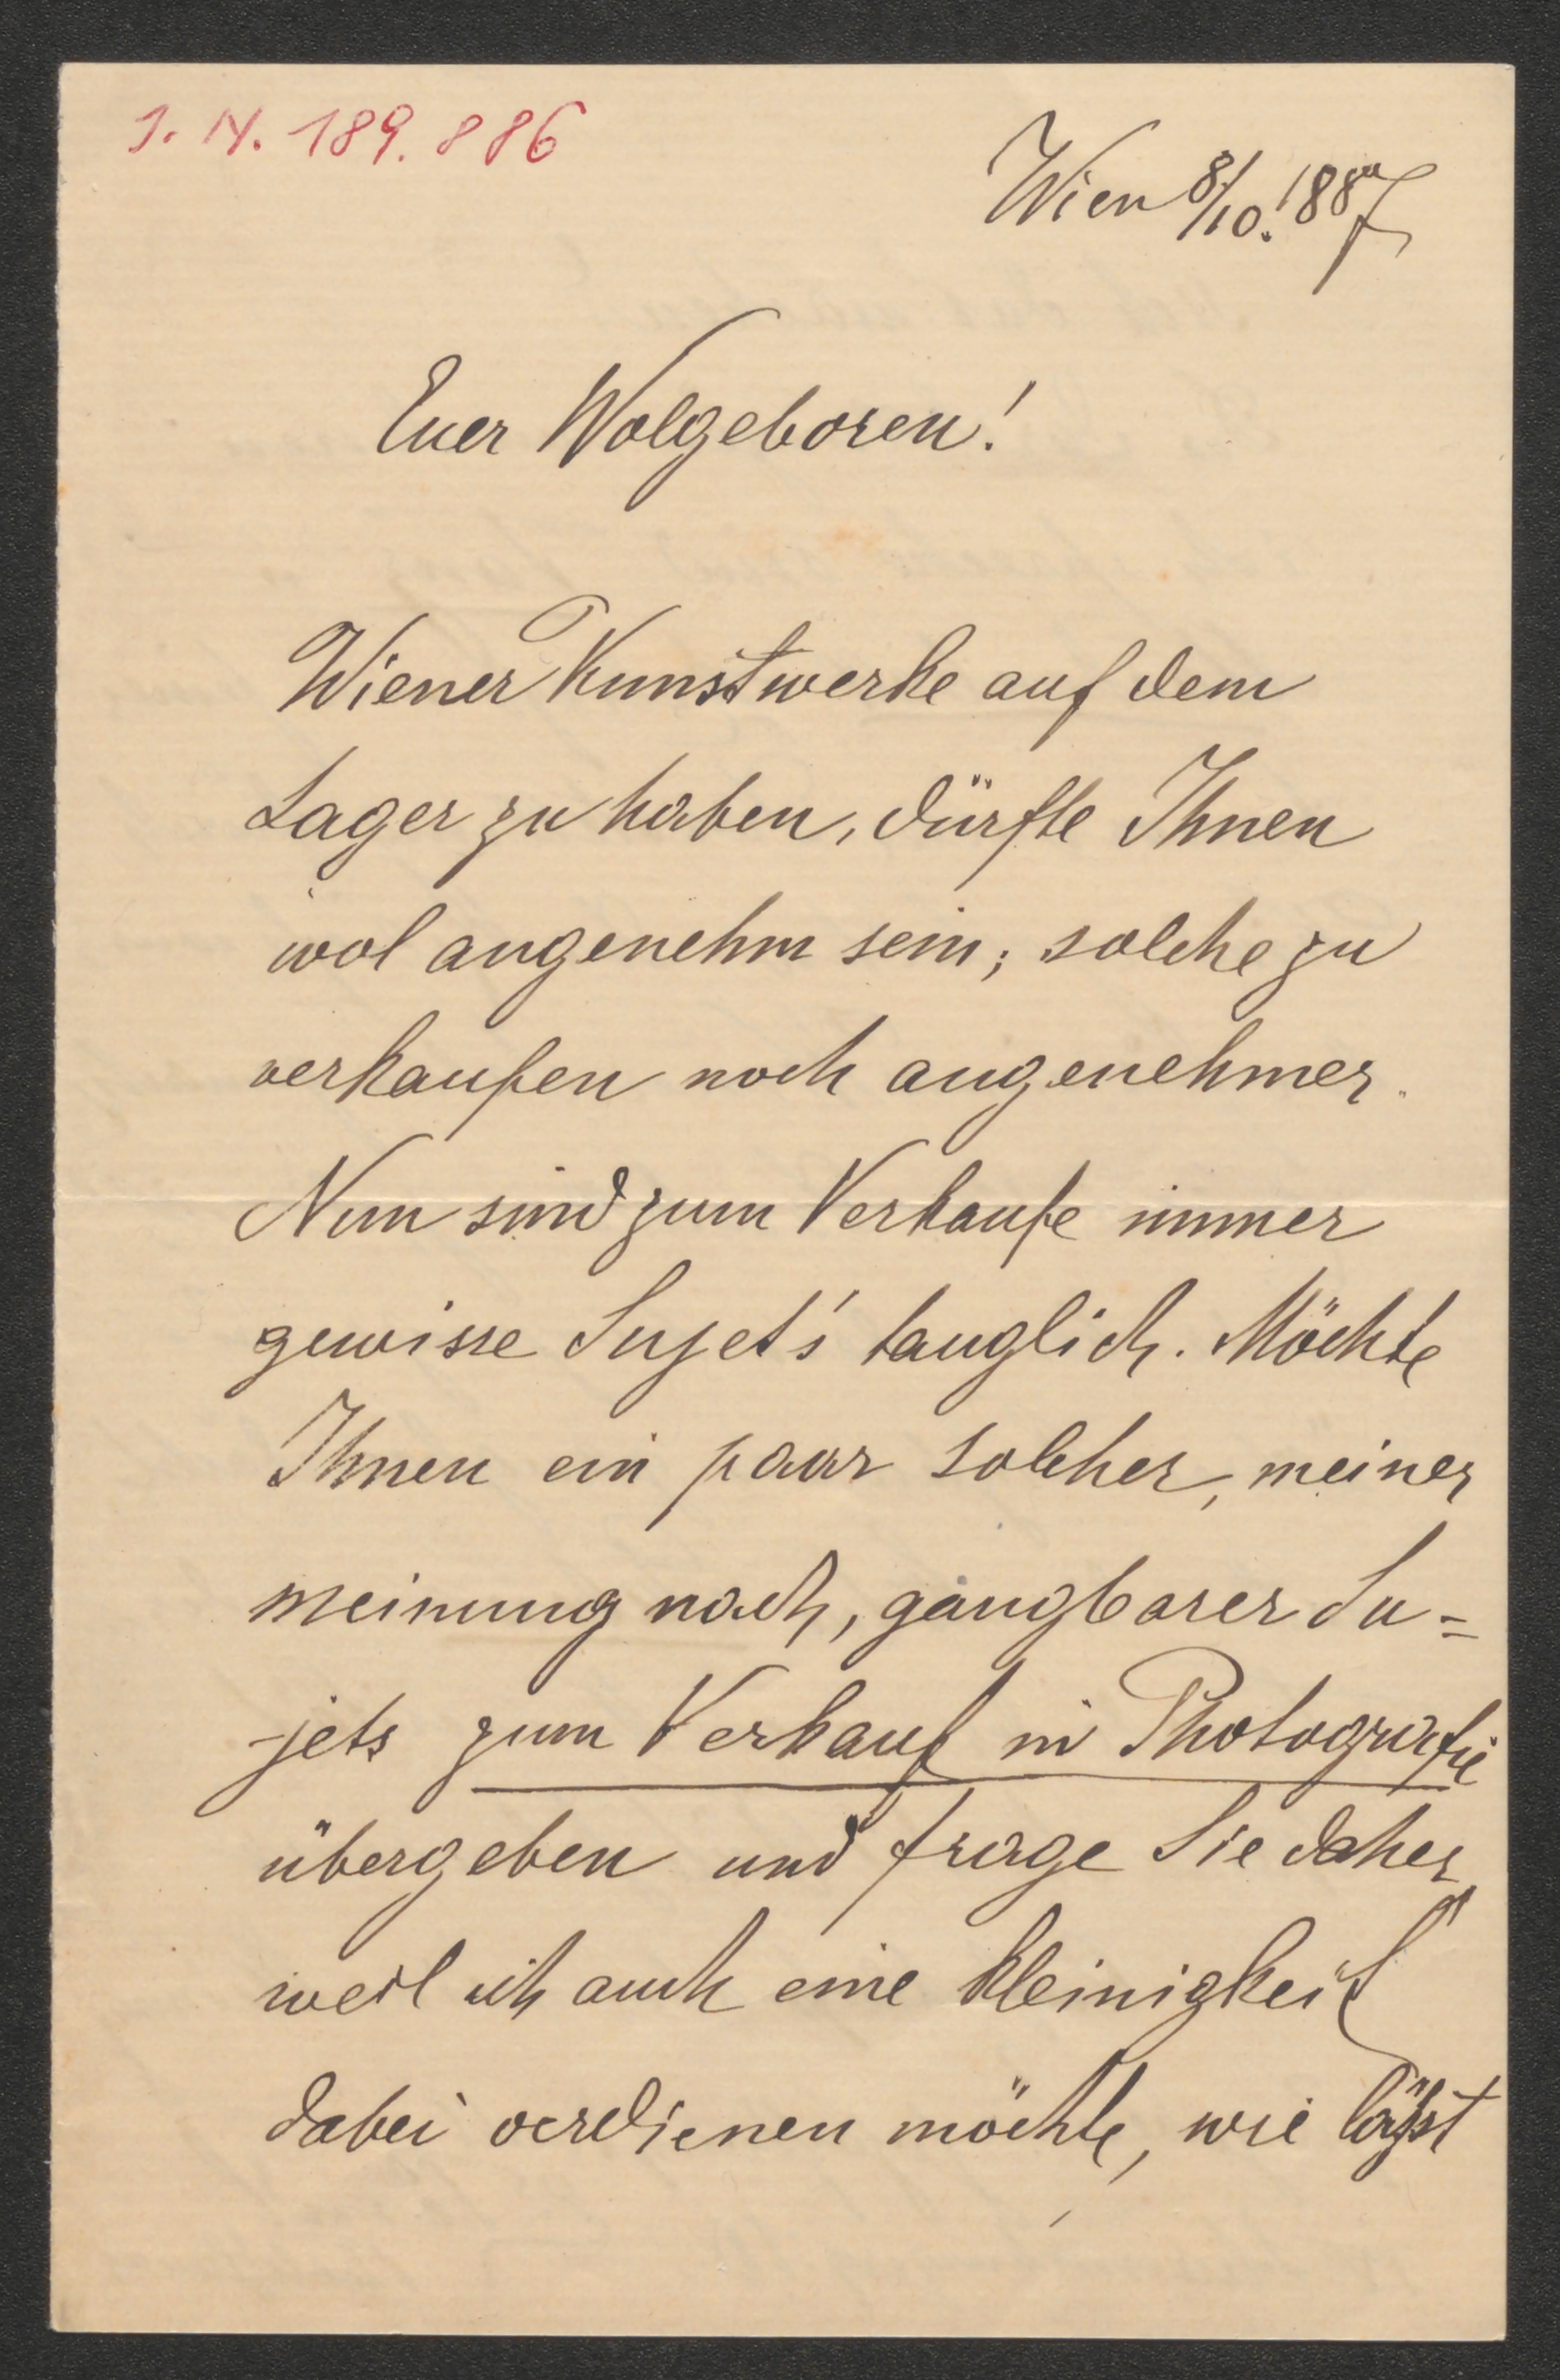 J. N. 189.886
Wien 8/10. 1887
Euer Wolgeboren!
Wiener Kunstwerke auf dem
Lager zu haben, dürfte Ihnen
wol angenehm sein; solche zu
verkaufen noch angenehmer.
Nun sind zum Verkaufe immer
gewisse Sujet's tauglich. Möchte
Ihnen ein paar solcher, meiner
Meinung nach, gangbarer Su=
-jets zum Verkauf in Photografie
übergeben und frage Sie daher
weil ich auch eine Kleinigkeit
dabei verdienen möchte, wie läßt